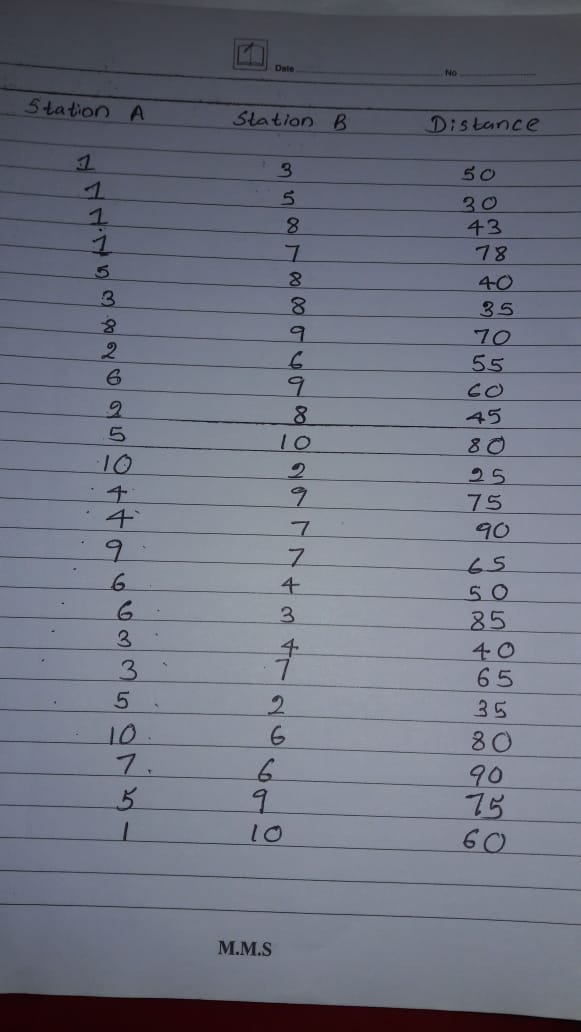 1
Date No
Station A Station B Distance
1 3 50
1 5 30
1 8 43
1 7 78
5 8 40
3 8 35
8 9 70
2 6 55
6 9 60
2 8 45
5 10 80
10 2 25
4 9 75
4 7 90
9 7 65
6 4 50
6 3 85
3 4 40
3 7 65
5 2 35
10 6 80
7 6 90
5 9 75
1 10 60
M.M.S